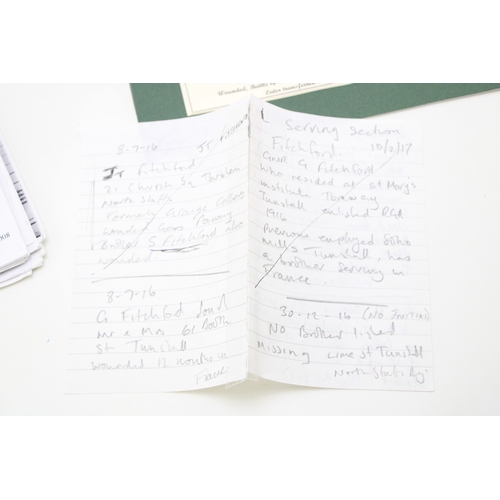 Wounded, Battle of
Later transferred
8-7-16 JT Fitchford
JT Fitchford
21 Church Sq Tunstall
North Staffs
Formerly Grange Colliery
Wounded Gone
Brother S. Fitchford also
wounded
8-7-16
G Fitchford
Mr & Mrs 61 Booth
St Tunstall
wounded 12 months in
France
Serving Section
Fitchford. 10/2/17
Gnr G Fitchford
who resided at St Marys
institute
Tunstall enlisted RGA
1916
Previous employed Soho
Mills Tunstall, has
a brother serving in
France.
30-12-16 (NO INITIAL)
NO Brother listed
Missing Lime St Tunstall
North Staffs Rg